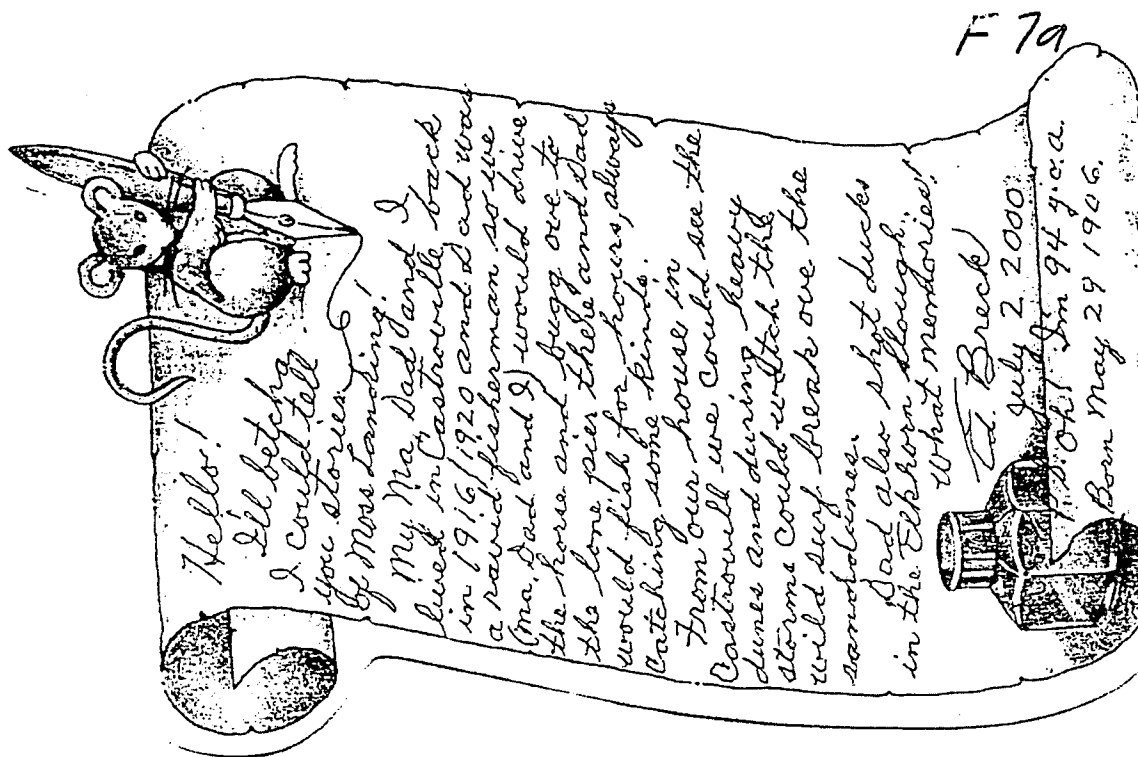 F 7a
Hello!
I'll betcha
I could tell
you stories
of Moss Landing!
My Ma, Dad and I
lived in Castroville back
in 1916/1920 and Dad was
a ravid fisherman so we
(Ma, Dad and I) would drive
the horse and bugg ove to
the lone pier there and Dad
would fish for hours, always
catching some kinds.
From our house in
Castrovill we could see the
dunes and during heavy
storms could watch the
wild surf break ove the
sanddunes.
Dad also shot ducks
in the Elkhorn Slough,
What memories!
Ed. Breck
July 2 2000
P.S. Oh! I'm 94 y.o.a.
Born May 29 1906.